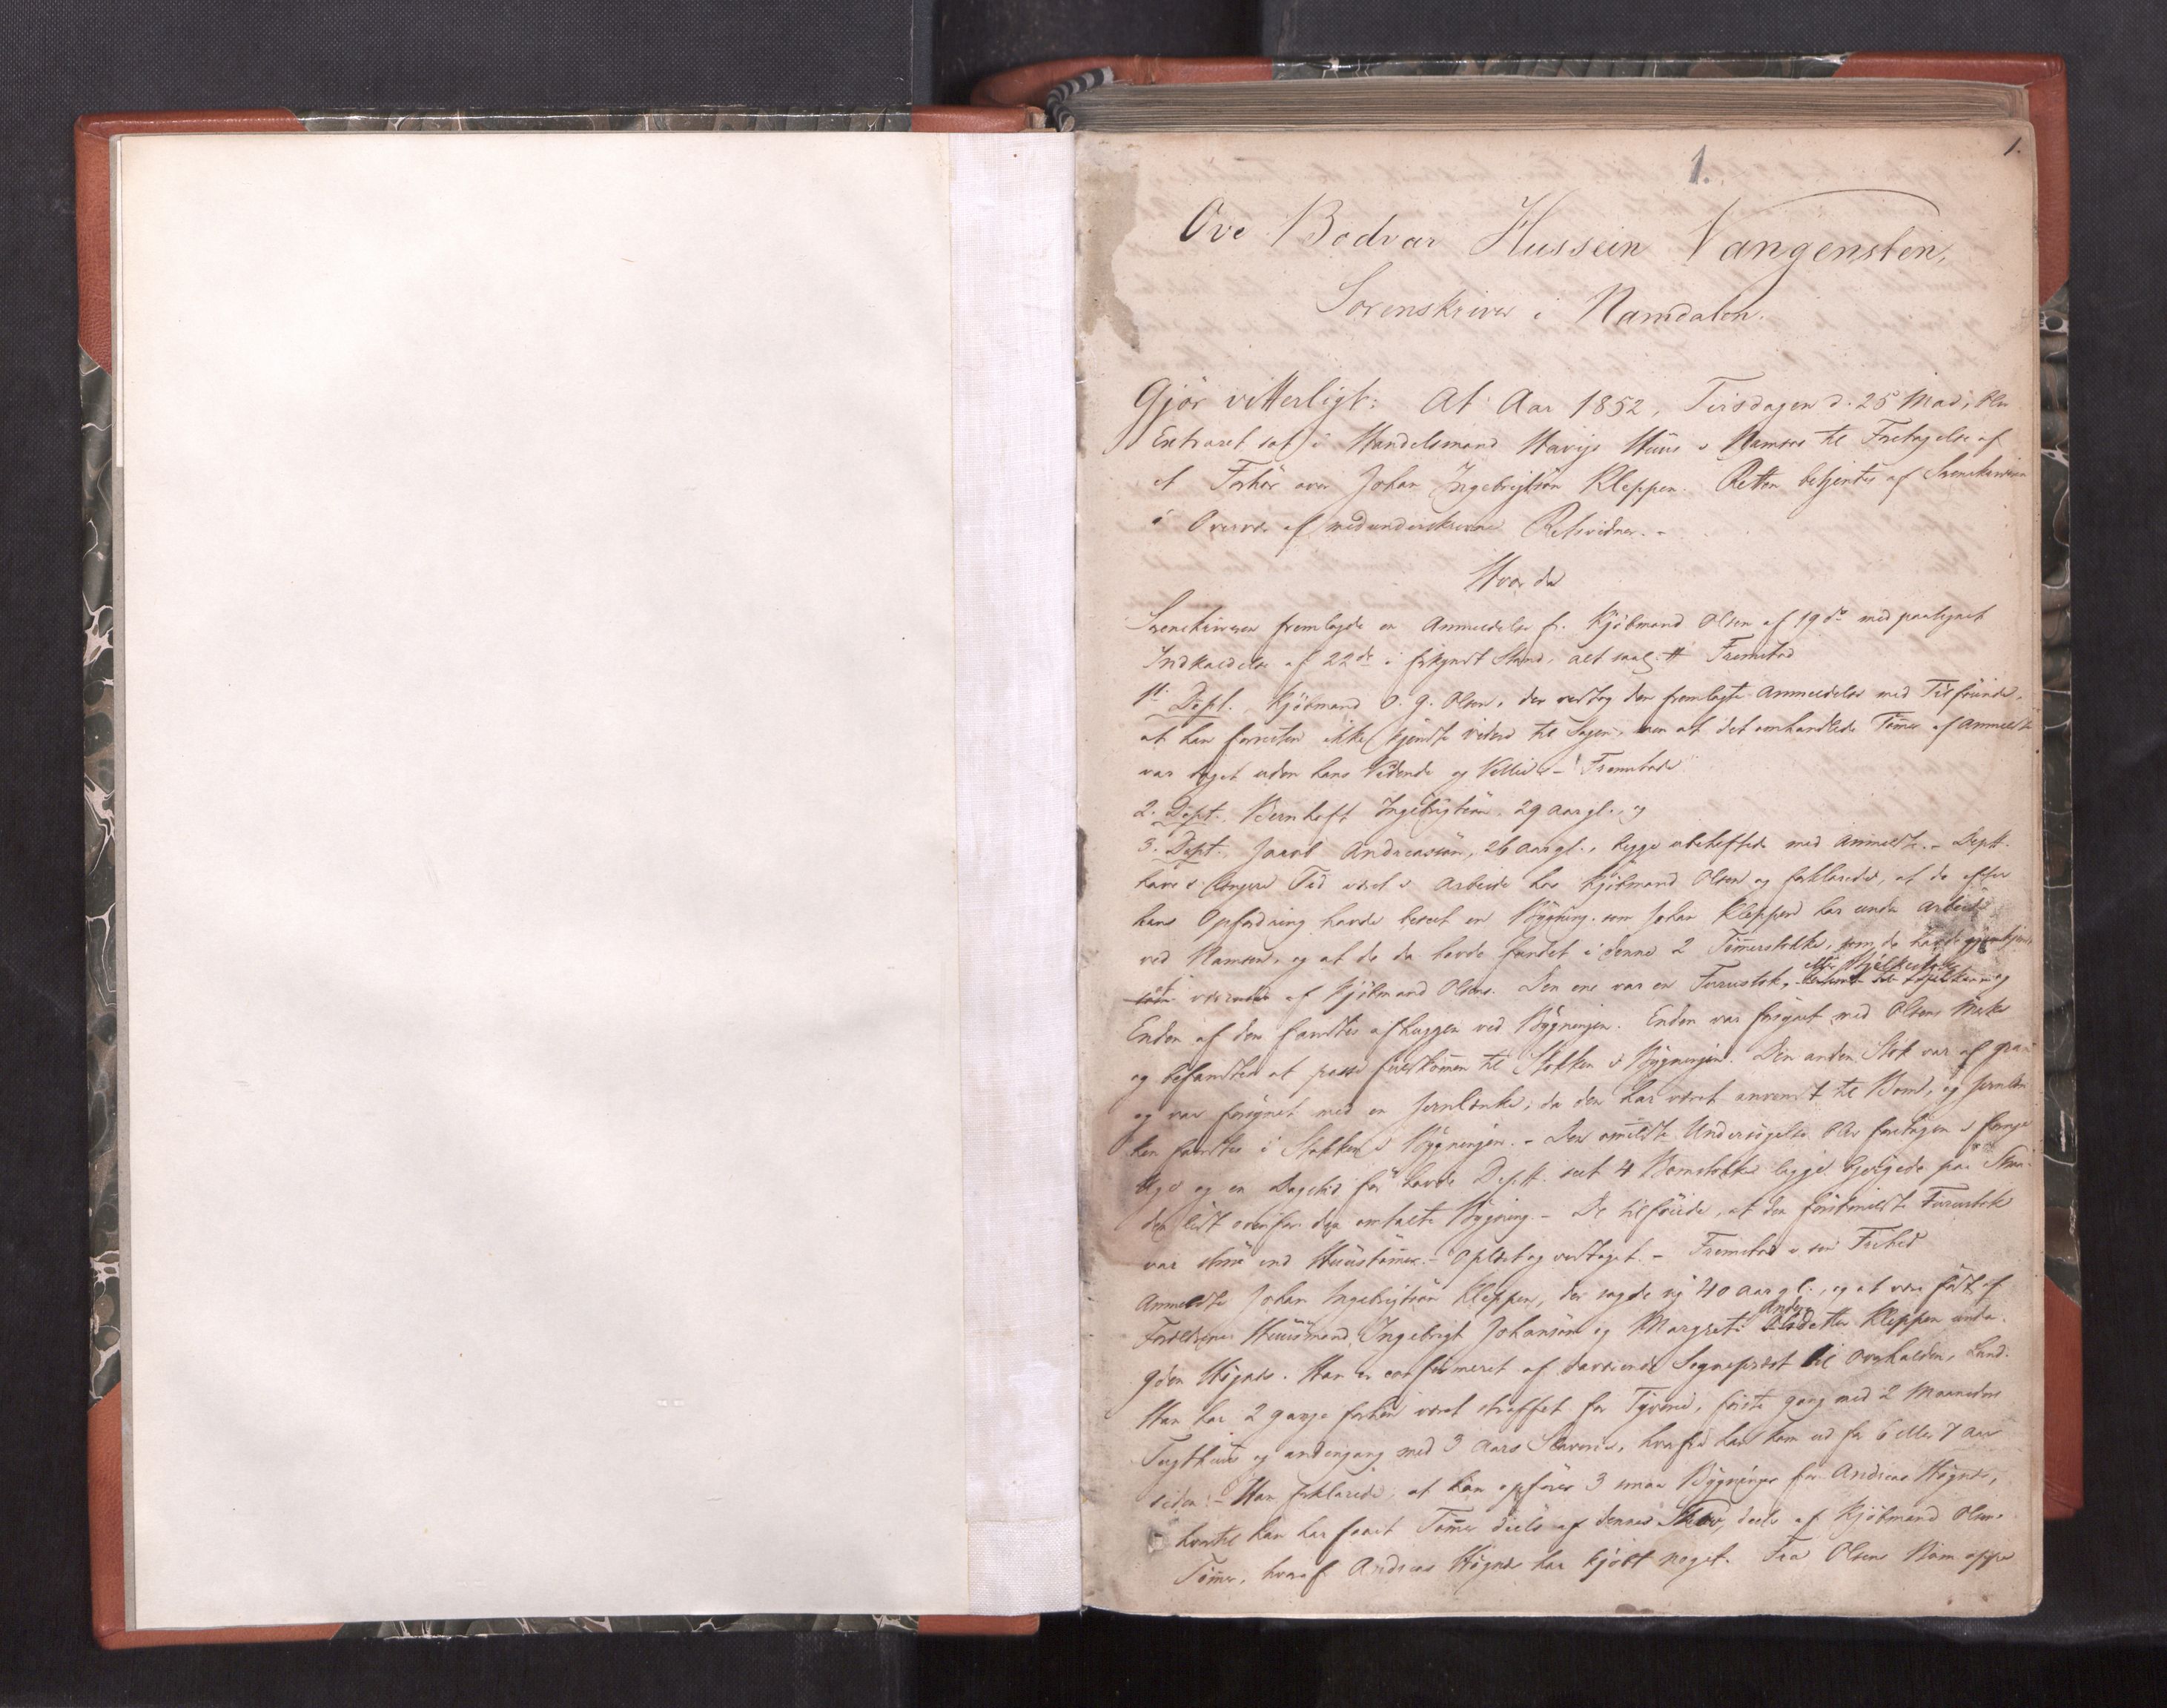 1.
1.
Ove Bodvar Hussein Vangensten,
Sorenskriver i Namdalen.
Gjör vitterligt: At Aar 1852, Tirsdagen d. 25 Mai, blev
Extraret sat i Handelsmand Huus Namsos til Foretagelse af
et Forhör over Johan Ingebrigtsön Kleppen. Retten betjentes af Sorenskriveren
i Overvær af medunderskrevne Retsvidner. -
Hvor da
Sorenskriveren fremlagde en Anmeldelse fr. Kjöbmand Olsen af 19de med paategnet
Indkaldelse af 22de i forkyndt Stand. Fremstod
1st Dept. Kjöbmand O. G. Olsen, der vedtog den fremlagte Anmeldelse med Tilföiende,
at han forresten ikke kjendte videre til Sagen, men at det omhandlede Tömer af Anmeldte
var taget uden hans Vidende og Villie. - Fremstod
2. Dept. Bernhoft Ingebrigtsön, 29 Aar gl. og
3. Dept. Jacob Andreassön, 26 Aar gl., begge ubeheftede med Anmeldte. - Deptt.
have i længere Tid været i Arbeide hos Kjöbmand Olsen og forklarede, at de efter
hans Opfordring havde beseet en Bygning, som Johan Kleppen har under Arbeide
ved Namsen, og at de da havde fundet i denne 2 Tömerstokke, som de havde gjenkjendt
eller Bjelkestok
at være af Kjöbmand Olsens. Den ene var en Furustok,
Enden af den fandtes afhuggen ved Bygningen. Enden var forsynet med Olsens Mærke
og befandtes at passe fuldkommen til Stokken i Bygningen. Den anden Stok var af Gran
og var forsynet med en Jernlænke, da den har været anvendt til Bom, og Jernlæn-
ken fandtes i Stokken i Bygningen. - Den omtldte Undersögelse blev foretagen i forrige
Uge og en Dagstid för havde Deptt. seet 4 Bomstokke ligge bjergede paa Stran-
den lidt ovenfor den omtalte Bygning. - De tilföiede, at den förstmeldte Furustok
var större end Huustömer. - Oplæst og vedtaget. - Fremstod i sin Frihed
Anmeldte Johan Ingebrigtsön Kleppen, der sagde sig 40 Aar gl., og at være födt af
Anders
Forældrene Huusmand Ingebrigt Johansön og Margret datter Kleppen under
Gden Högnes. Han er confirmeret af daværende Sogneprest til Overhalden, Lund.
Han har 2 gange forhen været straffet for Tyveri, förste gang med 2 Maaneders
Tugthuus og andengang med 3 Aars Slaveri, hvorfra han kom ud for 6 eller 7 Aar
siden. - Han forklarede, at han opförer 3 smaa Bygninger for Andreas Högnes,
hvortil han har faaet Tömer deels af dennes Skov, deels af Kjöbmand Olsens
Tömer, hvoraf Andreas Högnes har kjöbt noget. Fra Olsens Bom oppe